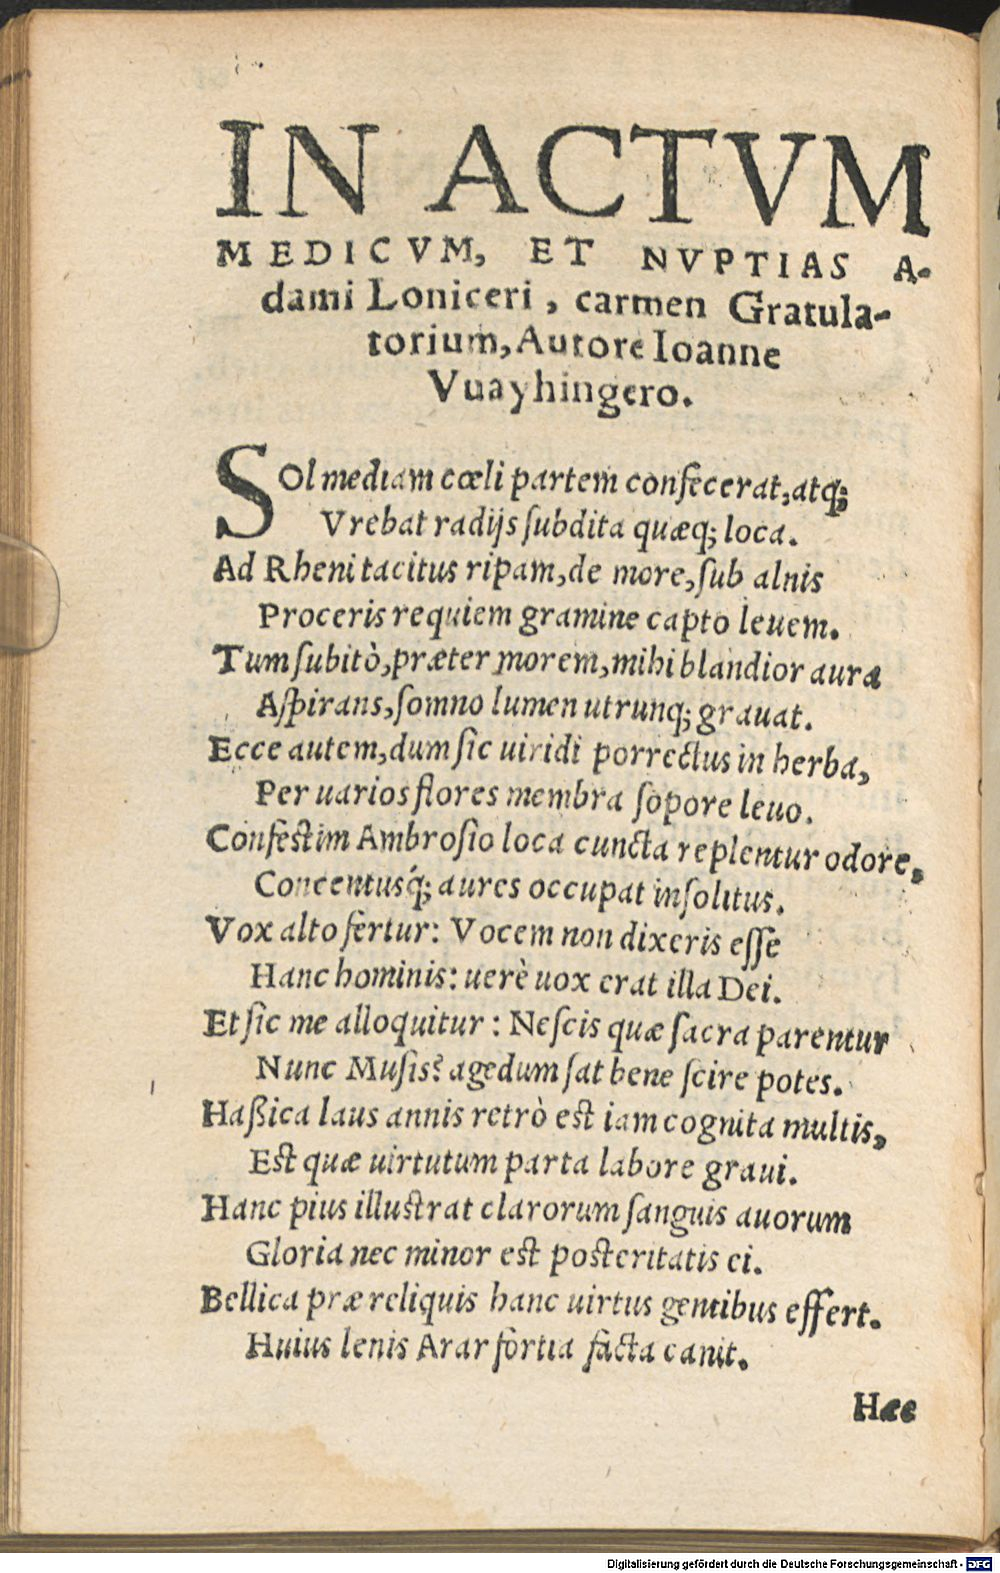 IN ACTVM
MEDICVM, ET NVPTIAS A-
dami Loniceri, carmen Gratula-
torium, Autore Ioanne
Vuayhingero.
SOl mediam cœli partem confecerat, atq;
Vrebat radijs subdita quæq; loca.
Ad Rheni tacitus ripam, de more, sub alnis
Proceris requiem gramine capto leuem.
Tum subitò, præter morem, mihi blandior aura
Aspirans, somno lumen utrunq; grauat.
Ecce autem, dum sic uiridi porrectus in herba,
Per uarios flores membra sopore leuo.
Confestim Ambrosio loca cuncta replentur odore,
Concentusq́; aures occupat insolitus.
Vox alto fertur: Vocem non dixeris esse
Hanc hominis: uerè uox erat illa Dei.
Et sic me alloquitur: Nescis quæ sacra parentur
Nunc Musis? agedum sat bene scire potes.
Haßica laus annis retrò est iam cognita multis,
Est quæ uirtutum parta labore graui.
Hanc pius illustrat clarorum sanguis auorum
Gloria nec minor est posteritatis ei.
Bellica præ reliquis hanc uirtus gentibus effert.
Huius lenis Arar fortia facta canit.
Hæc
Digitalisierung gefördert durch die Deutsche Forschungsgemeinschaft - DFG